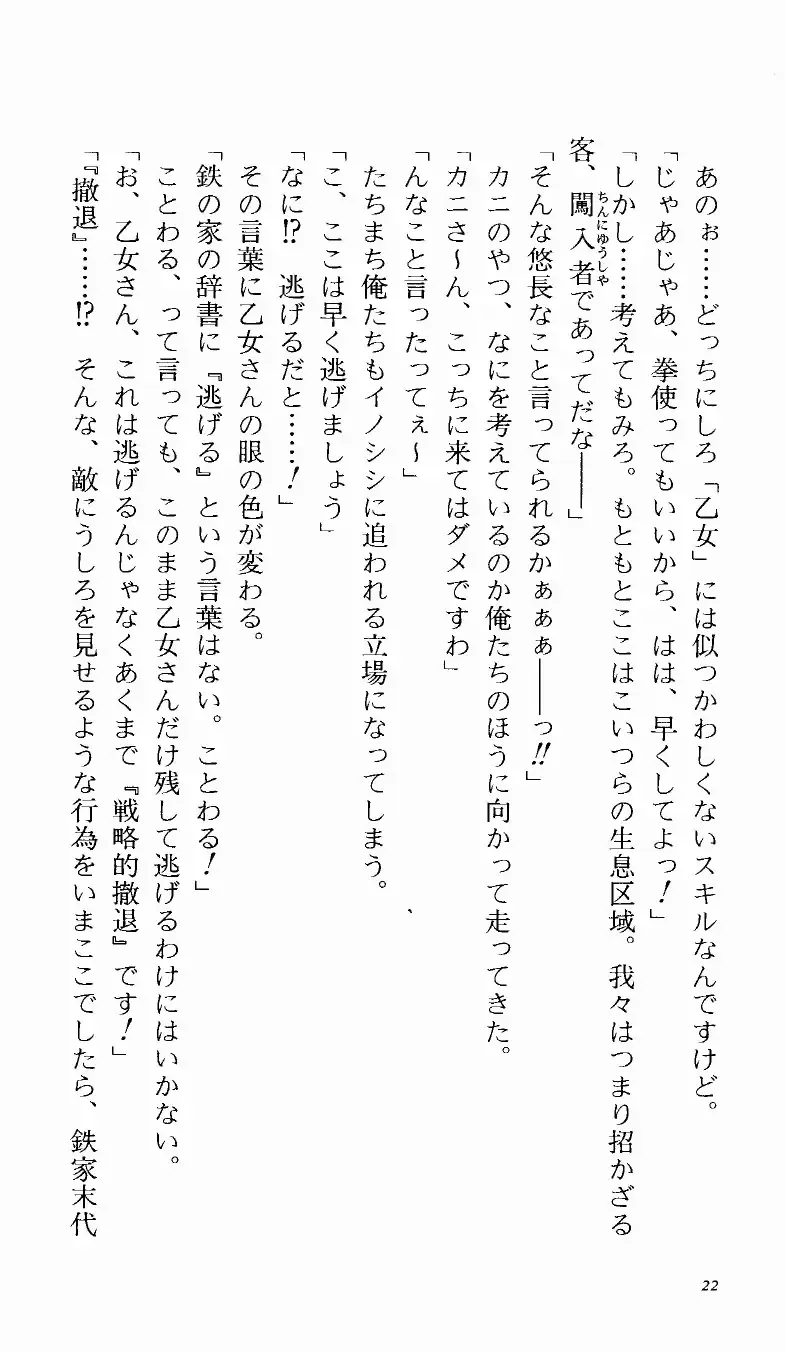 あのぉ……どっちにしろ「乙女」には似つかわしくないスキルなんですけど。
「じゃあじゃあ、拳使ってもいいから、はは、早くしてよっ！」
「しかし……考えてもみろ。もともとここはこいつらの生息区域。我々はつまり招かざる
客、闖入者であってだな――」
ちんにゅうしゃ
「そんな悠長なこと言ってられるかぁぁぁ――っ!!」
カニのやつ、なにを考えているのか俺たちのほうに向かって走ってきた。
「カニさ～ん、こっちに来てはダメですわ」
「んなこと言ったってぇ～」
たちまち俺たちもイノシシに追われる立場になってしまう。
「こ、ここは早く逃げましょう」
「なに!?　逃げるだと……！」
その言葉に乙女さんの眼の色が変わる。
「鉄の家の辞書に『逃げる』という言葉はない。ことわる！」
ことわる、って言っても、このまま乙女さんだけ残して逃げるわけにはいかない。
「お、乙女さん、これは逃げるんじゃなくあくまで『戦略的撤退』です！」
「『撤退』……!?　そんな、敵にうしろを見せるような行為をいまここでしたら、鉄家末代
22